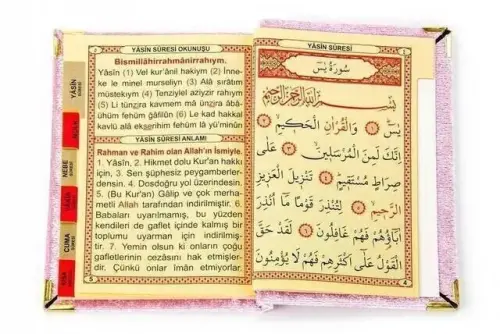 YÂSÎN SÛRESİ OKUNUŞU
Bismillâhirrahmânirrahıym.
Yâsîn (1) Vel kur'ânil hakiym (2) İnne-
ke le minel murseliyn (3) Alâ sırâtım
müstekıym (4) Tenziylel aziyzir rahıym
(5) Li tünzira kavmem mâ ünzira âbâ-
ühüm fehüm ğâfilûn (6) Le kad hakkal
kavlü alâ ekserihim fehüm lâ yü'minûn
YÂSÎN SÛRESİ ANLAMI
Rahman ve Rahim olan Allah'ın İsmiyle.
1. Yâsîn, 2. Hikmet dolu Kur'an hakkı
için, 3. Sen şüphesiz peygamberler-
densin. 4. Dosdoğru yol üzerindesin.
5. (Bu Kur'an) Gâlip ve çok merha-
metli Allah tarafından indirilmiştir. 6.
Babaları uyarılmamış, bu yüzden
kendileri de gaflet içinde kalmış bir
toplumu uyarman için indirilmiş-
tir. 7. Yemin olsun ki onların çoğu
gafletlerinin cezasını hak etmişler-
dir. Çünkü onlar îman etmiyorlar.
5
YÂSÎN
SÛRESİ
NEBE
SÛRESİ
CUMA
SÛRESİ
YÂSÎN SÛRESİ
سُورَةُ يٰسٓ
بِسْمِ اللّٰهِ الرَّحْمٰنِ الرَّحِيمِ
يٰسٓ ﴿١﴾ وَالْقُرْاٰنِ الْحَكِيمِ ﴿٢﴾
اِنَّكَ لَمِنَ الْمُرْسَلِينَ ﴿٣﴾ عَلٰى
صِرَاطٍ مُسْتَقِيمٍ ﴿٤﴾ تَنْزِيلَ الْعَزِيزِ
الرَّحِيمِ ﴿٥﴾ لِتُنْذِرَ قَوْمًا مَٓا اُنْذِرَ
اٰبَٓاؤُهُمْ فَهُمْ غَافِلُونَ ﴿٦﴾ لَقَدْ حَقَّ
الْقَوْلُ عَلٰٓى اَكْثَرِهِمْ فَهُمْ لَا يُؤْمِنُونَ
4